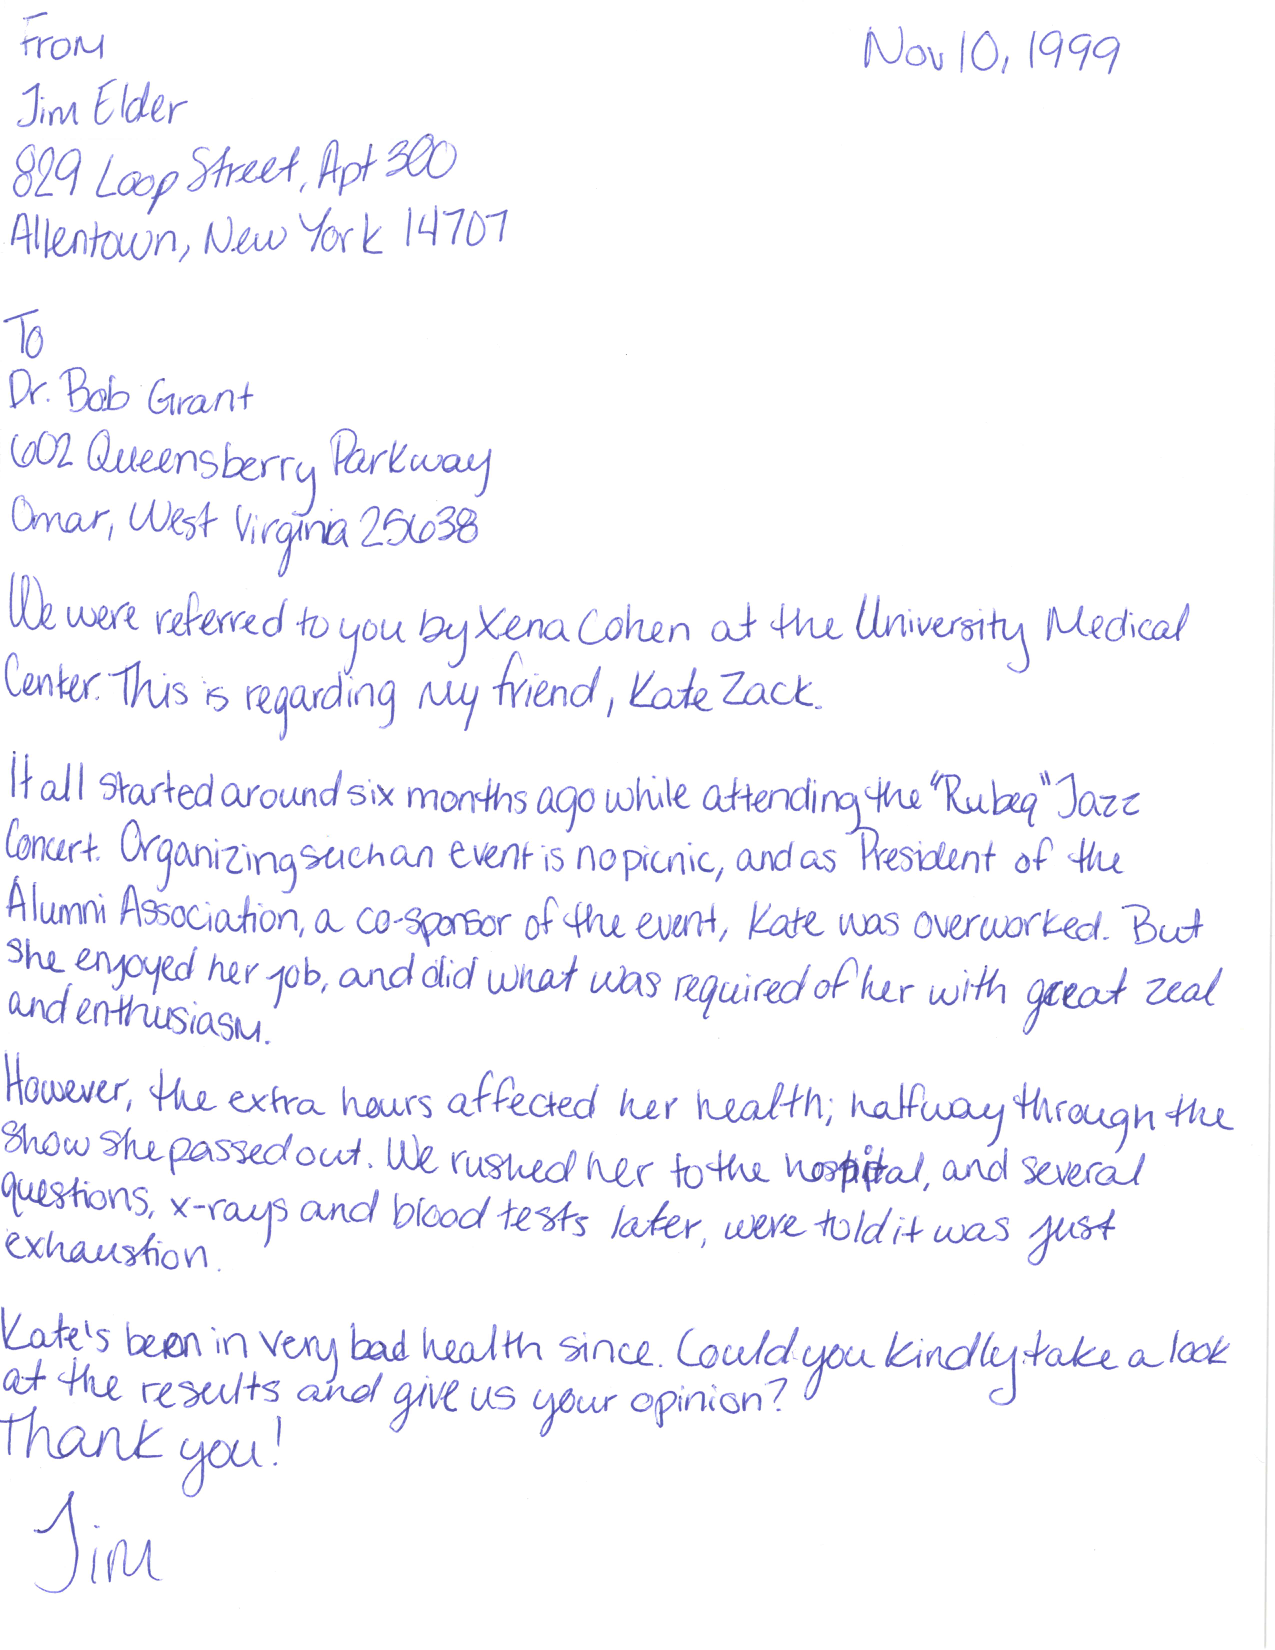 From
Nov 10, 1999
Jim Elder
829 Loop Street, Apt 300
Allentown, New York 14707
To
Dr. Bob Grant
602 Queensberry Parkway
Omar, West Virginia 25638
We were referred to you by Xena Cohen at the University Medical
Center. This is regarding my friend, Kate Zack.
It all started around six months ago while attending the "Rubeq" Jazz
Concert. Organizing such an event is no picnic, and as President of the
Alumni Association, a co-sponsor of the event, Kate was overworked. But
she enjoyed her job, and did what was required of her with great zeal
and enthusiasm.
However, the extra hours affected her health; halfway through the
show she passed out. We rushed her to the hospital, and several
questions, x-rays and blood tests later, were told it was just
exhaustion.
Kate's been in very bad health since. Could you kindly take a look
at the results and give us your opinion?
Thank you!
Jim